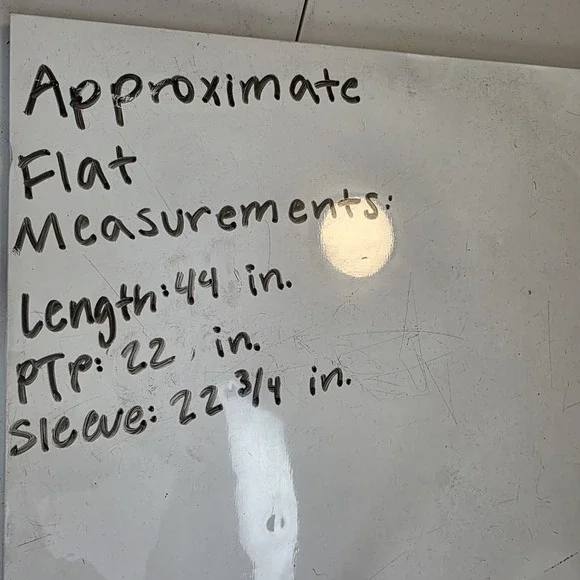 Approximate
Flat
Measurements:
Length: 44 in.
PTP: 22 in.
Sleeve: 22 3/4 in.